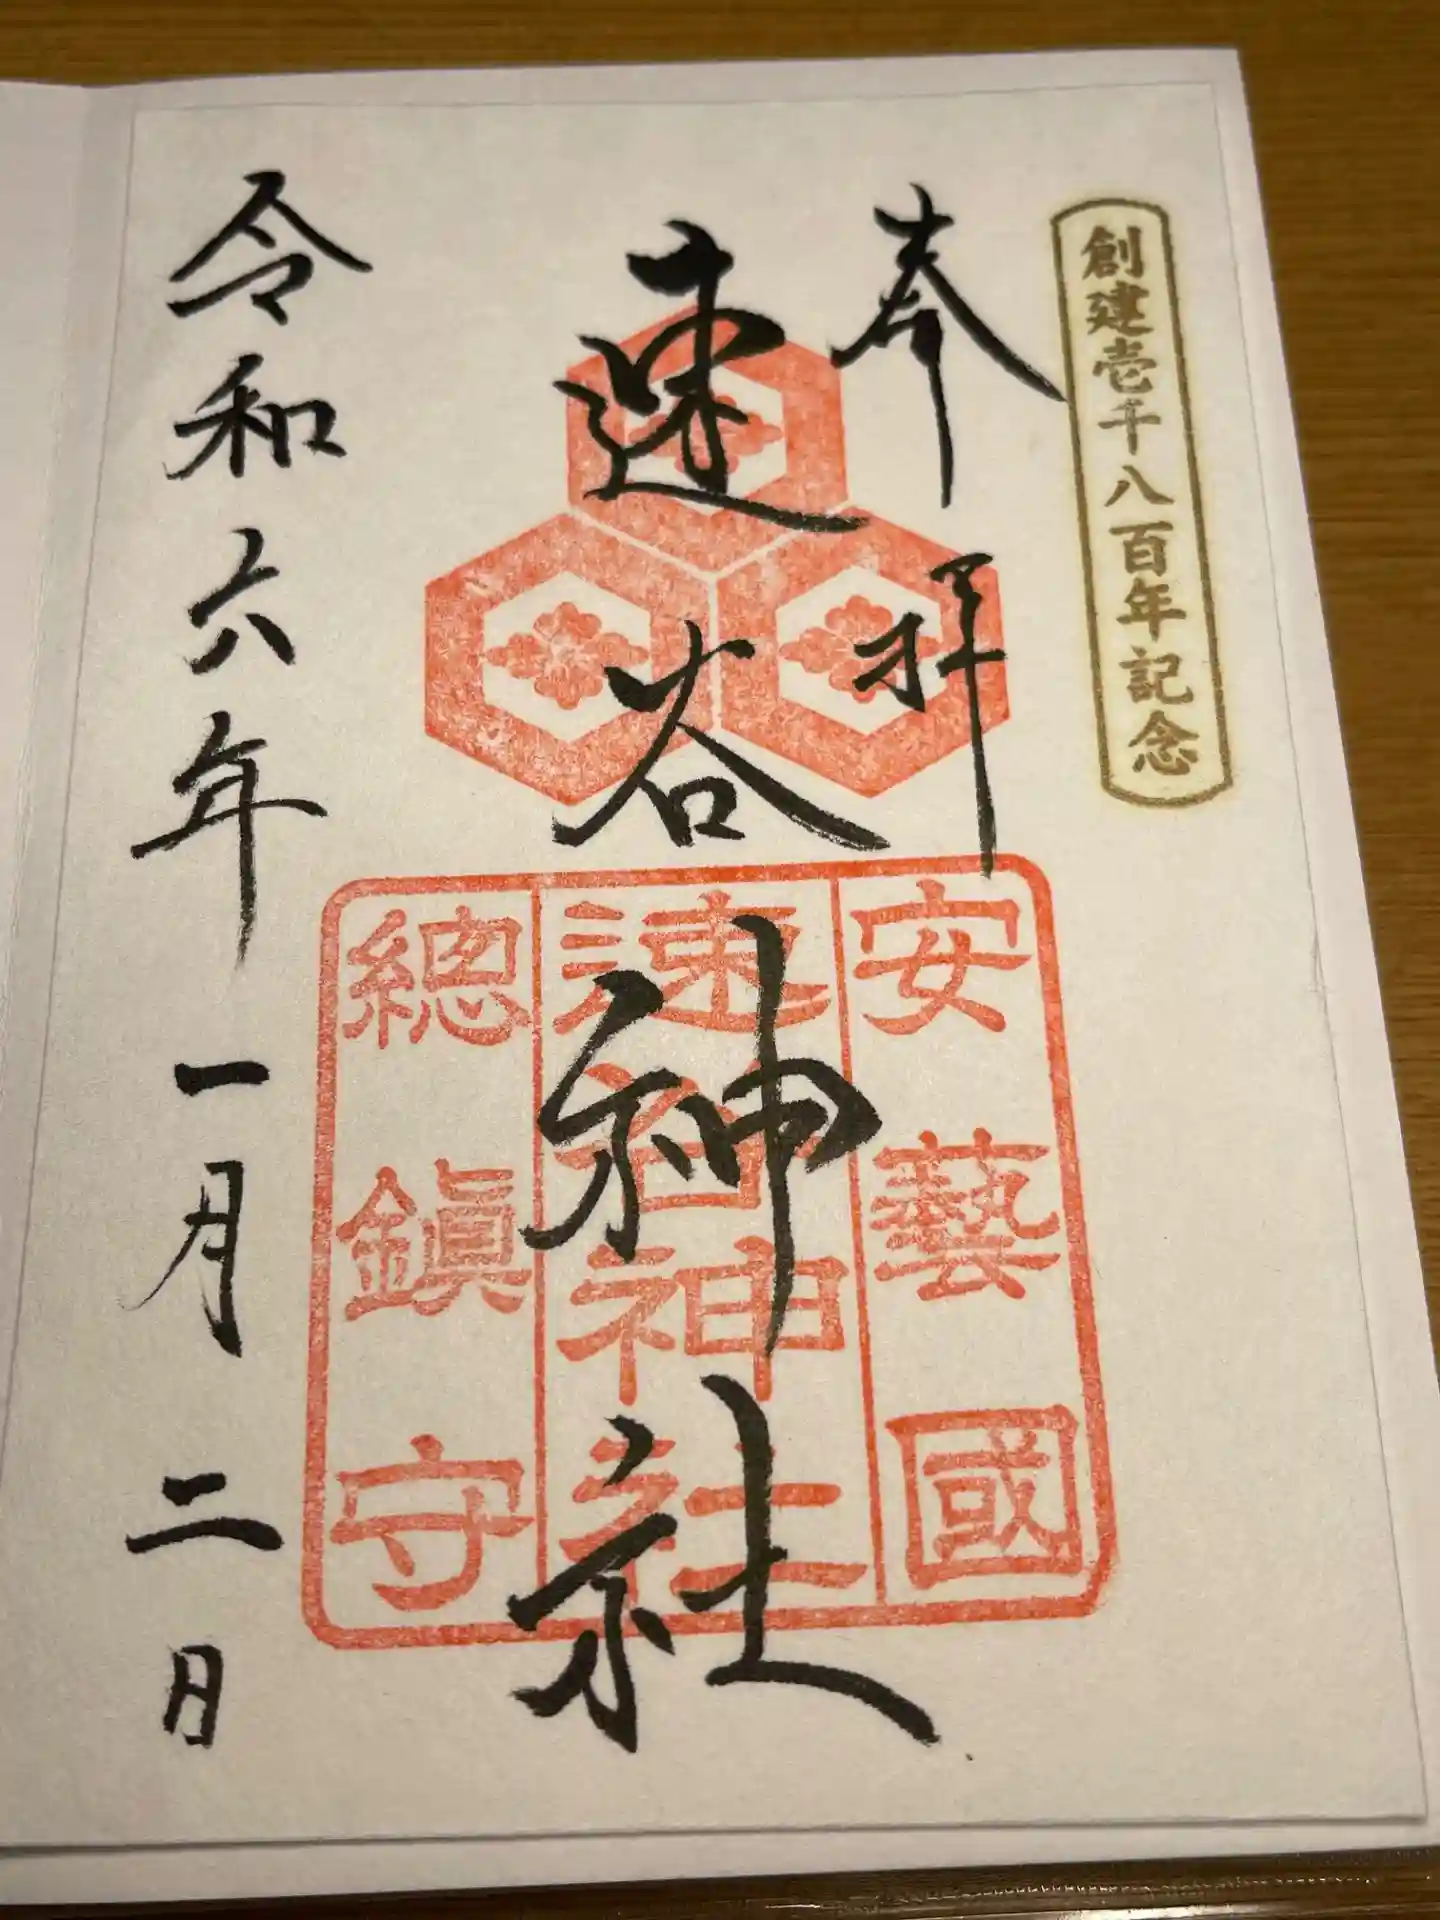 創建壱千八百年記念
奉拝
速谷神社
安藝國
速谷神社
總鎮守
令和六年一月二日